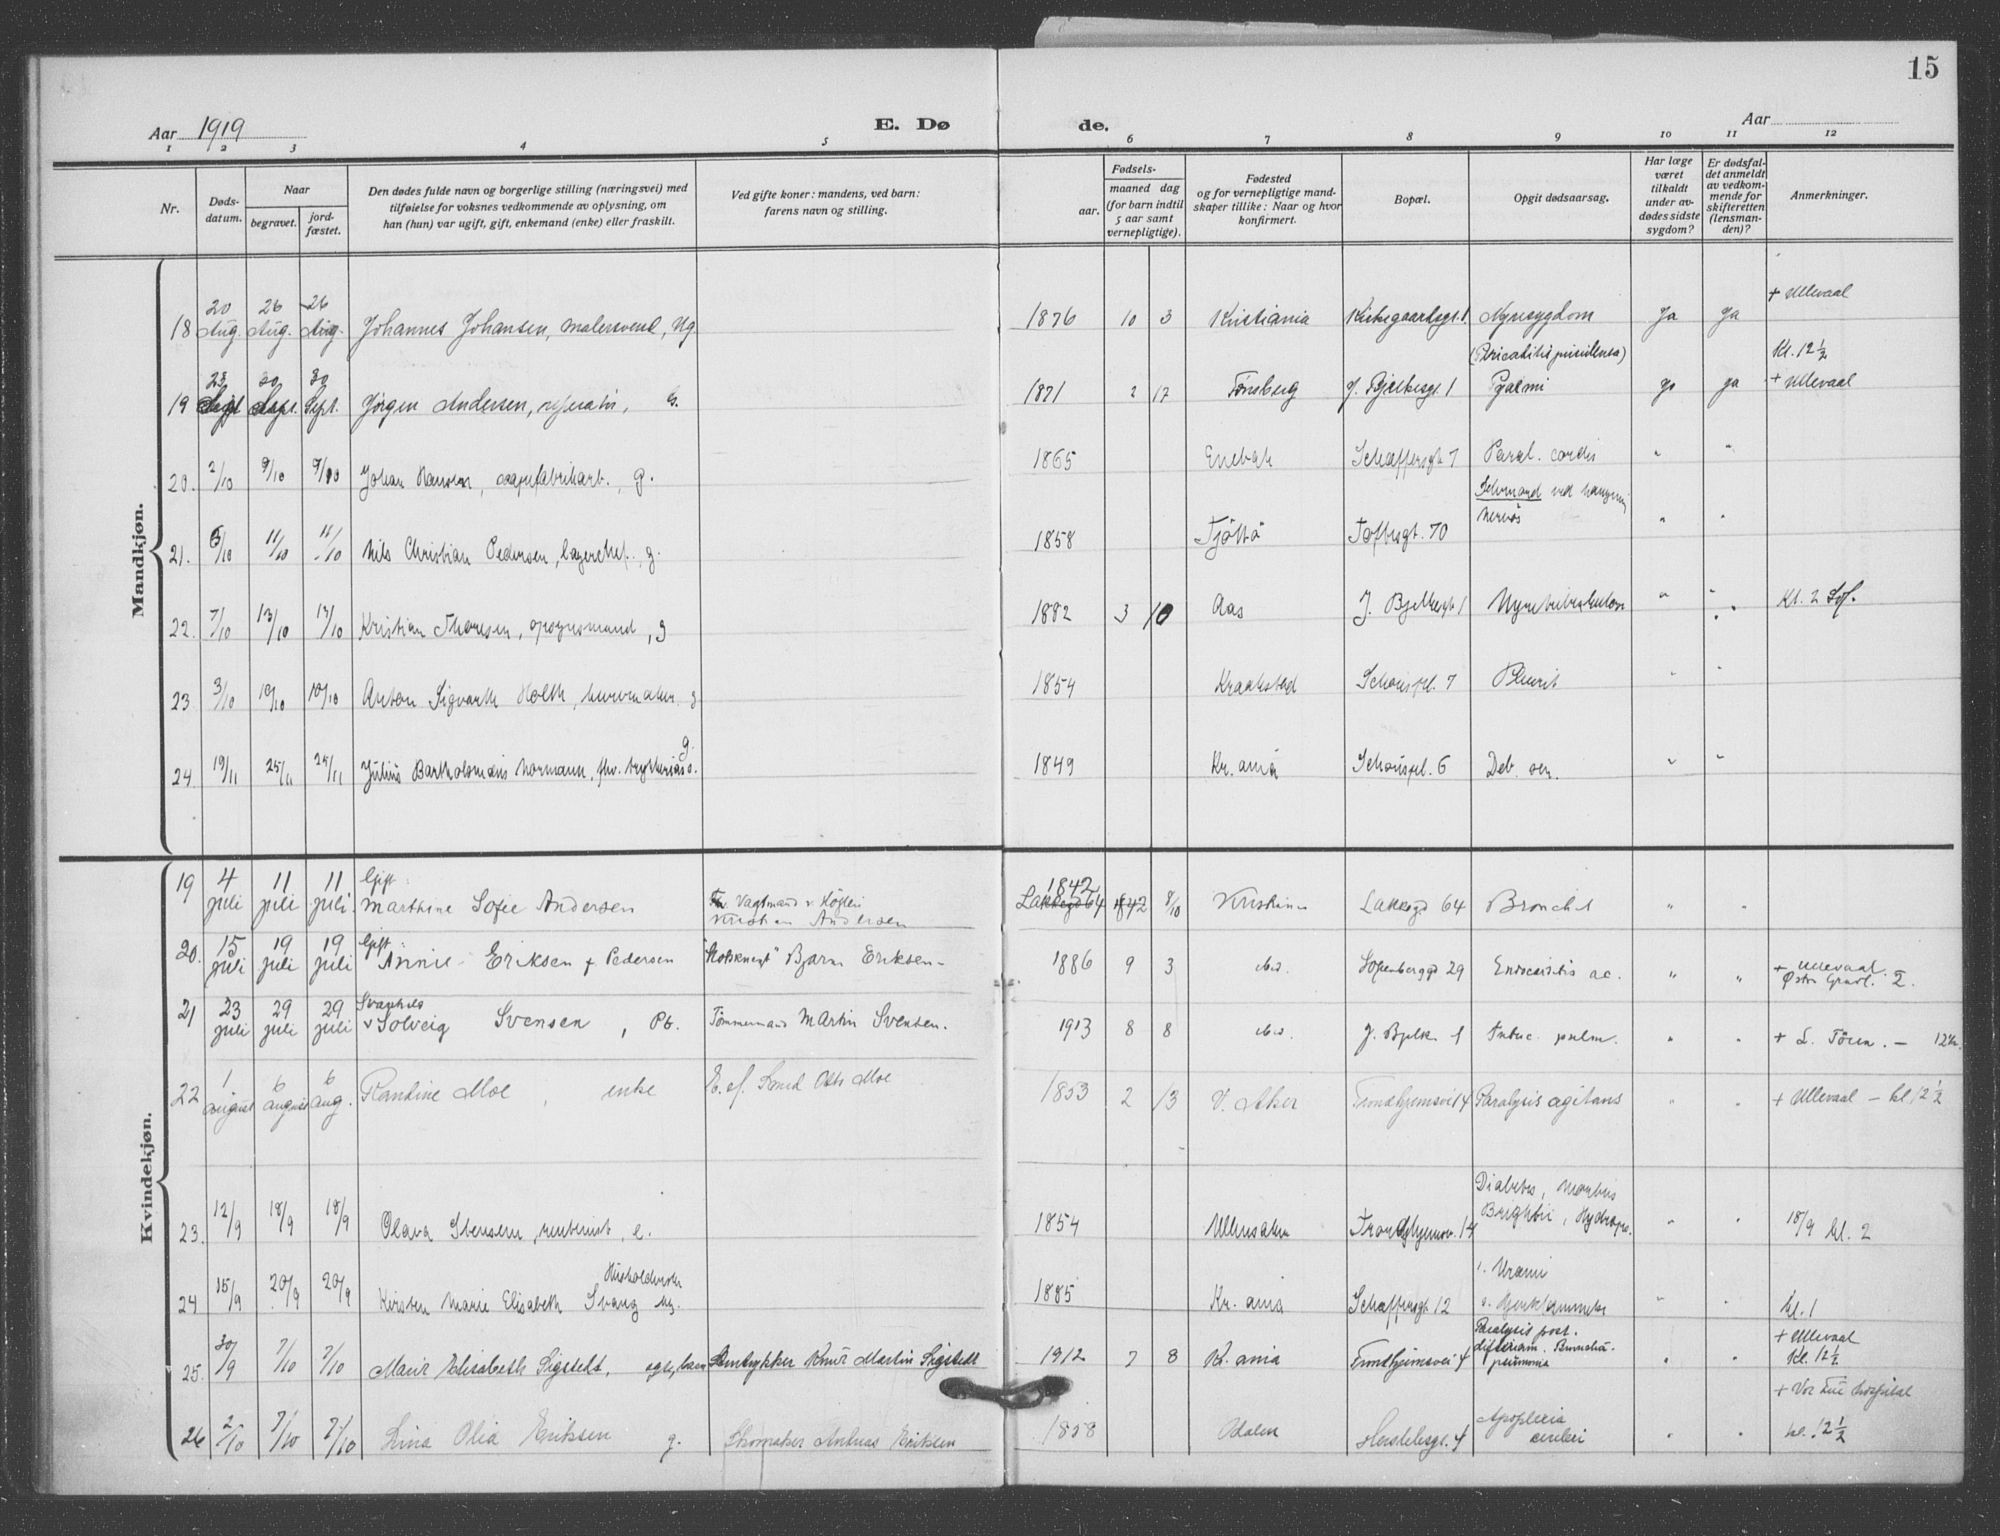 15
Aar 1919 E. Dø de. Aar
1 2 3 4 5 6 7 8 9 10 11 12
Nr. Døds-datum. Naar begravet. jord-fæstet. Den dødes fulde navn og borgerlige stilling (næringsvei) med tilføielse for voksnes vedkommende av oplysning, om han (hun) var ugift, gift, enkemand (enke) eller fraskilt. Ved gifte koner: mandens, ved barn: farens navn og stilling. Fødsels- aar. maaned dag (for barn indtil 5 aar samt vernepligtige). Fødested og for vernepligtige mandskaper tillike: Naar og hvor konfirmert. Bopæl. Opgit dødsaarsag. Har læge været tilkaldt under avdødes sidste sygdom? Er dødsfaldet anmeldt av vedkommende for skifteretten (lensmanden)? Anmerkninger.
Mandkjøn.
18 20 Aug. 26 Aug. 26 Aug. Johannes Johansen, malersvend, Ug 1876 10 3 Kristiania Kirkegaardsgt. 1 Nyresygdom Ja Ja + Ullevaal
19 23 Sept. 30 Sept. 30 Sept. Jørgen Andersen, G. 1871 2 17 Tønsberg J. Bjelkesgt. 1 Pyæmi Ja ja Kl. 12½ + Ullevaal
20. 2/10 9/10 9/10 Johan Hansen, g. 1865 Enebak Schæffersgt 7 Paral. cordis " "
21. 6/10 11/10 11/10 Nils Christian Pedersen, lagerchef, g. 1858 Tjöttö Toftesgt. 70 Selvmord ved hængning nervös " "
22. 7/10 13/10 13/10 Kristian Thoresen, opsynsmand, g 1882 3 10 Aas J. Bjelkesgt 1 Nyretuberkulose " " Kl. 2 Sof.
23 3/10 10/10 10/10 Anton Sigvarth Holth, g 1854 Kraakstad Schouspl. 7 Pleurit " "
24. 19/11 25/11 25/11 Julius Bartholomæus Normann, fhv. g. 1849 Kr.ania Schouspl. 6 Deb. sen. " "
Kvindekjøn.
19 4 juli 11 juli 11 juli Gift: Marthine Sofie Andersen Vagtmand Kristian Andersen 1842 Lakkegd 64 1842 8/10 Kristiania Lakkegd 64 Bronchit " "
20. 15 juli 19 juli 19 juli Gift: Annie Eriksen f Pedersen Bjarne Eriksen 1886 9 3 ibid. Sofienberggd 29 Endocarditis ac. " " + Ullevaal. Østre Gravl. 2.
21 23 juli 29 juli 29 juli Svanhild Solveig Svensen, Pb. Tømmermand Martin Svensen. 1913 8 8 ibid. J. Bjelk. 1 Tuberc. pulm. " " + L. Töien. — 12½
22 1 august 6 august 6 aug. Randine Moe, enke E. ef. Otto Moe 1853 2 13 V. Aker Trondhjemsvei 14 Paralysis agitans " " + Ullevaal — kl 12½
23. 12/9 18/9 18/9 Olava Stensen, e. 1854 Ullensaker Trondhjemsv. 14 Diabetes, Morbus Brightii, Hydrops. " " 18/9 kl. 2
24 15/9 20/9 20/9 Kirsten Marie Elisabeth Svang Husholderske ug. 1885 Kr.ania Schæffersgt 12 Uræmi " " kl. 1
25. 30/9 7/10 7/10 Marie Elisabeth Sigstedt, Stentrykker Martin Sigstedt 1912 7 8 Kr.ania Trondhjemsvei 4 Paralysis post. difteriam. Broncho-pneumonia " " + Ullevaal Kl. 12½
26 2/10 7/10 7/10 Lina Olia Eriksen g. Skomaker Andreas Eriksen 1858 Odalen Herslebsgt. 4 Apoplexia cerebri " " + Vor Frue hospital kl. 12½